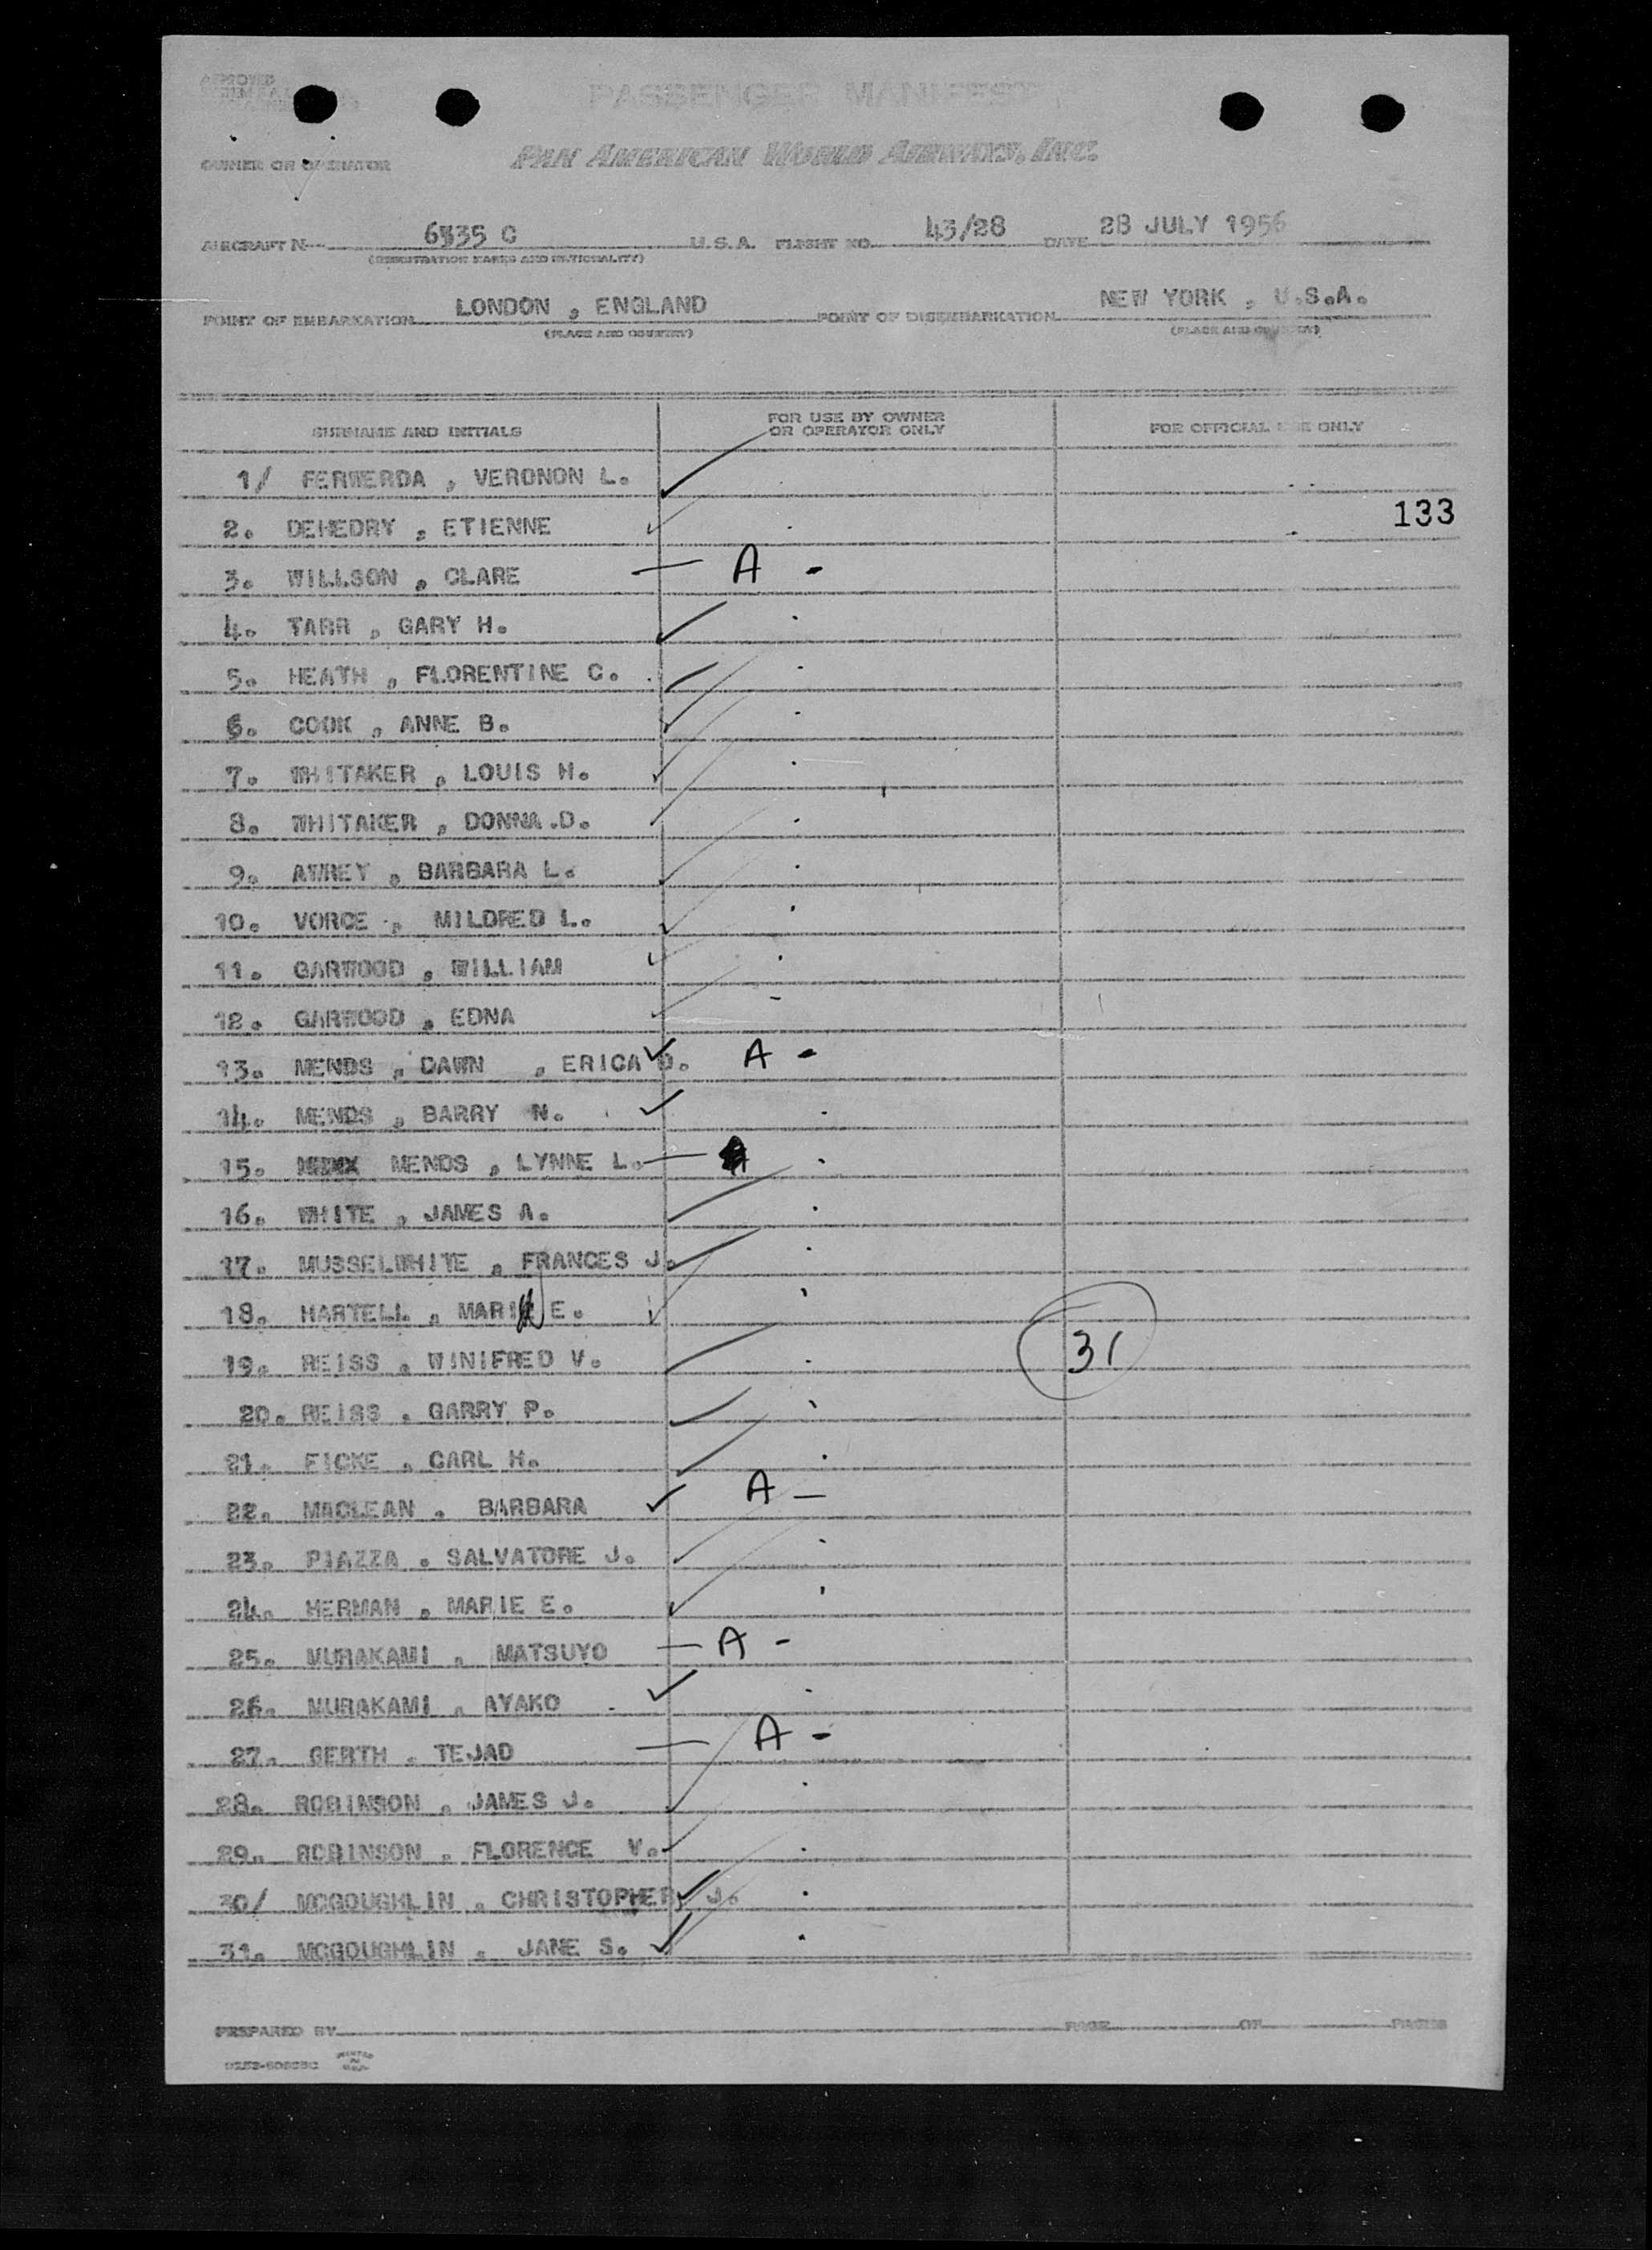 APPROVED
PASSENGER MANIFEST
OWNER OR OPERATOR
PAN AMERICAN WORLD AIRWAYS, INC.
AIRCRAFT N 6535 C U.S.A. FLIGHT NO. 43/28 DATE 28 JULY 1956
(REGISTRATION MARKS AND NATIONALITY)
POINT OF EMBARKATION LONDON , ENGLAND POINT OF DISEMBARKATION NEW YORK , U.S.A.
(PLACE AND COUNTRY) (PLACE AND COUNTRY)
SURNAME AND INITIALS FOR USE BY OWNER OR OPERATOR ONLY FOR OFFICIAL USE ONLY
1/ FERWERDA , VERONON L.
2. DEHEDRY , ETIENNE 133
3. WILLSON , CLARE — A -
4. TARR , GARY H.
5. HEATH , FLORENTINE C.
6. COOK , ANNE B.
7. WHITAKER , LOUIS H.
8. WHITAKER , DONNA .D.
9. AWREY , BARBARA L.
10. VORCE , MILDRED L.
11. GARWOOD , WILLIAM
12. GARWOOD , EDNA
13. MENDS , DAWN , ERICA D. A -
14. MENDS , BARRY N.
15. MENDS , LYNNE L. —
16. WHITE , JAMES A.
17. MUSSELWHITE , FRANCES J.
18. HARTELL , MARI E.
19. REISS , WINIFRED V. 31
20. REISS , GARRY P.
21. FICKE , CARL H.
22. MACLEAN , BARBARA A —
23. PIAZZA , SALVATORE J.
24. HERMAN , MARIE E.
25. MURAKAMI , MATSUYO — A -
26. MURAKAMI , AYAKO
27. GERTH , TEJAD — A -
28. ROBINSON , JAMES J.
29. ROBINSON , FLORENCE V.
30/ MCGOUGHLIN , CHRISTOPHER J.
31. MCGOUGHLIN , JANE S.
PREPARED BY PAGE OF PAGES
PRINTED IN U.S.A.